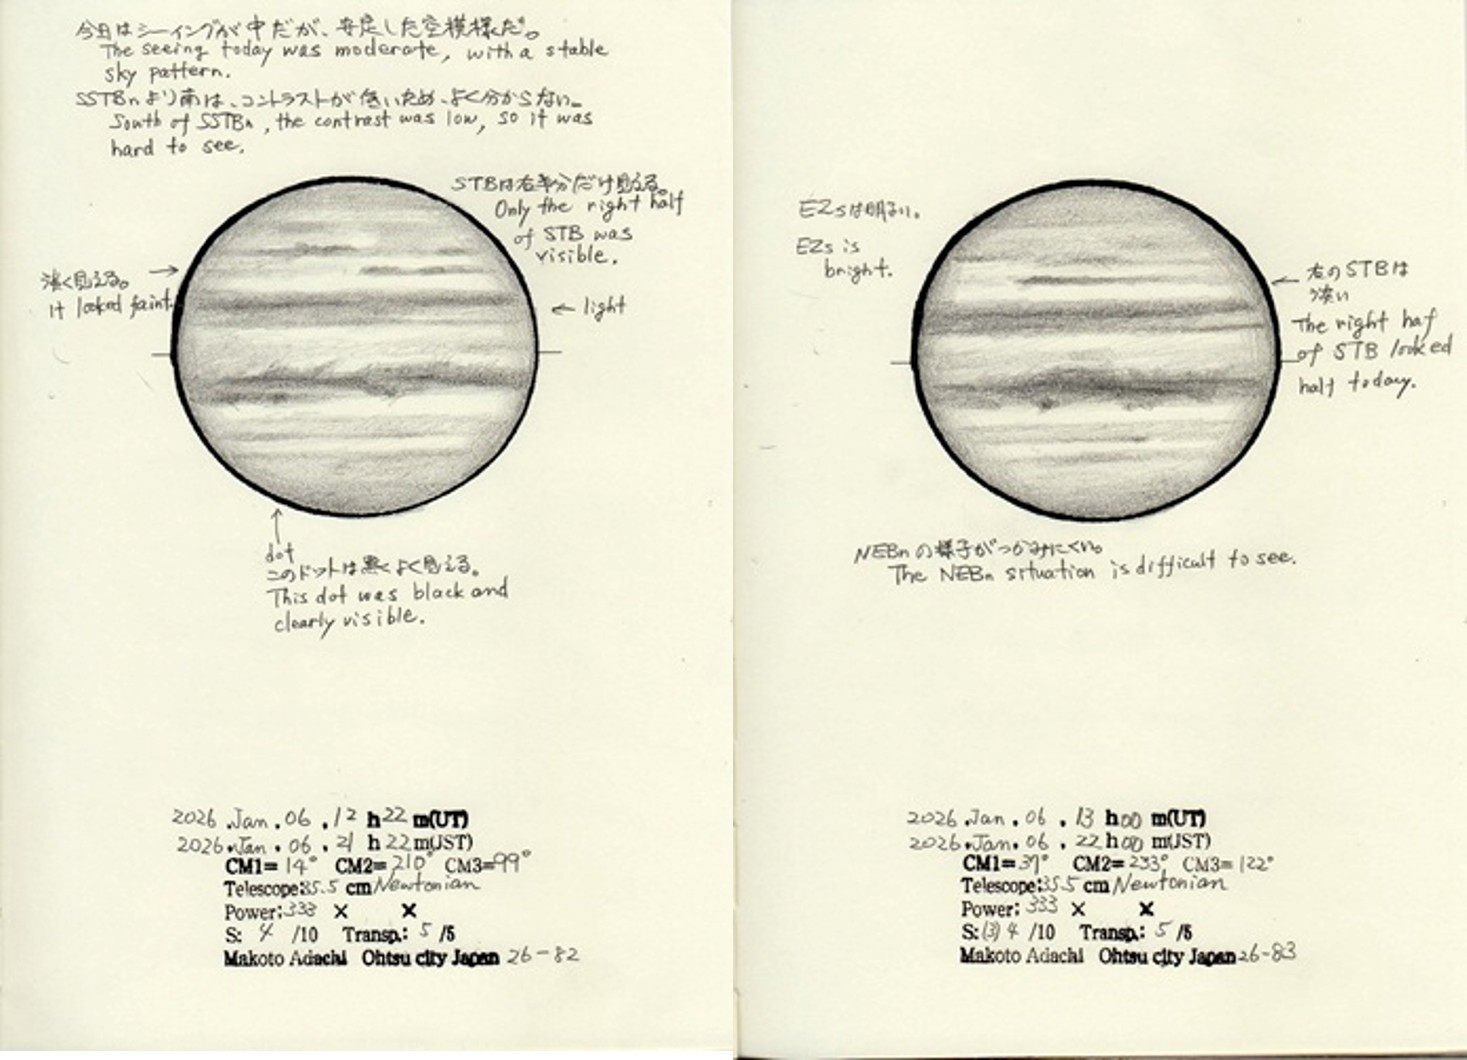 今日はシーイングが中だが、安定した空模様だ。
The seeing today was moderate, with a stable
sky pattern.
SSTBnより南は、コントラストが低いため、よく分からない。
South of SSTBn, the contrast was low, so it was
hard to see.
STBは右半分だけ見える。
Only the right half
of STB was
visible.
淡く見える。
It looked faint.
← light
dot
このドットは黒くよく見える。
This dot was black and
clearly visible.
2026.Jan.06.12h22m(UT)
2026.Jan.06.21h22m(JST)
CM1=14° CM2=210° CM3=99°
Telescope:35.5cm Newtonian
Power:333× ×
S: 4 /10 Transp.: 5 /5
Makoto Adachi Ohtsu city Japan 26-82
EZsは明るい。
EZs is
bright.
右のSTBは
淡い
The right haf
of STB looked
half today.
NEBnの様子がつかみにくい。
The NEBn situation is difficult to see.
2026.Jan.06.13h00m(UT)
2026.Jan.06.22h00m(JST)
CM1=37° CM2=233° CM3=122°
Telescope:35.5cm Newtonian
Power:333× ×
S:(3)4 /10 Transp.: 5 /5
Makoto Adachi Ohtsu city Japan 26-83